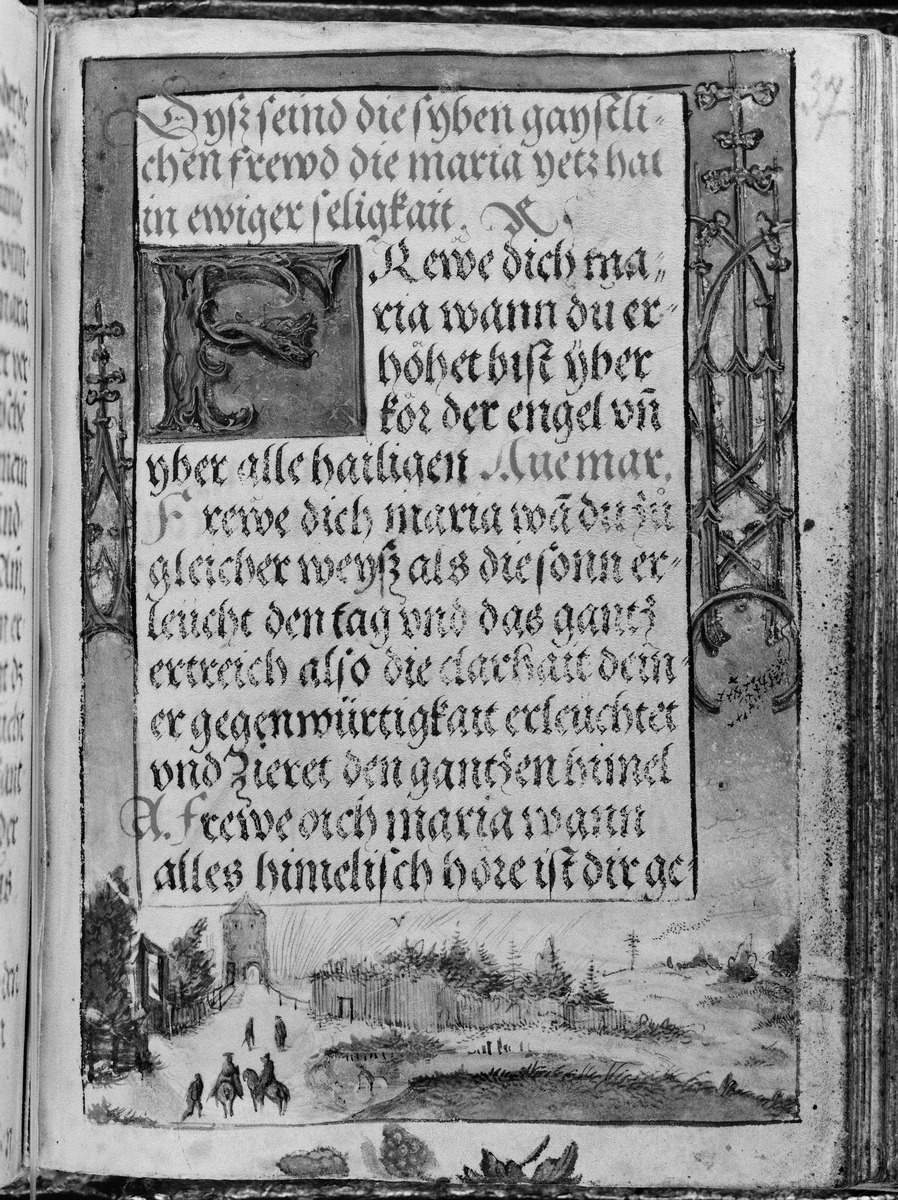 37
Dysz seind die syben gaystli-
chen frewd die maria yetz hat
in ewiger seligkait.
FRewe dich ma-
ria wann du er-
höhet bist yber
kör der engel vn̄
yber alle hailigen Aue mar.
Frewe dich maria wā du zů
gleicher weysz als die sonn er-
leücht den tag vnd das gantz
ertreich also die clarhait dein-
er gegenwürtigkait erleüchtet
vnd Zieret den gantzen himel
A. Frewe dich maria wann
alles himelisch höre ist dir ge-